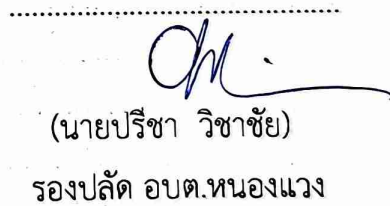 (นายปรีชา วิชาชัย)
รองปลัด อบต.หนองแวง